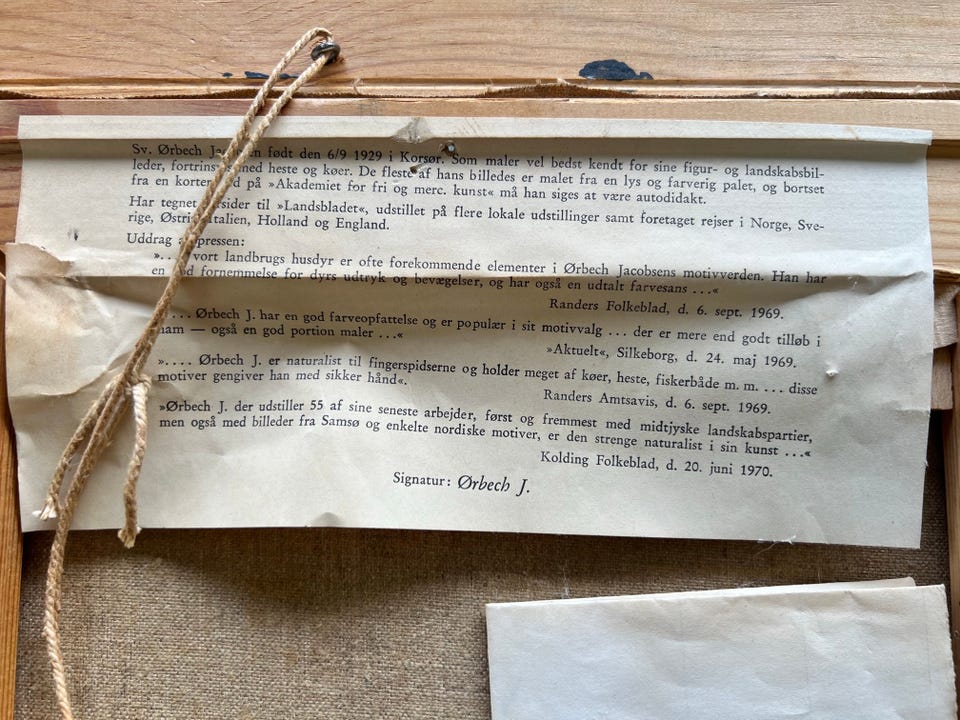 Sv. Ørbech født den 6/9 1929 i Korsør. Som maler vel bedst kendt for sine figur- og landskabsbil-
leder, med heste og køer. De fleste af hans billedes er malet fra en lys og farverig palet, og bortset
fra en på »Akademiet for fri og merc. kunst« må han siges at være autodidakt.
Har tegnet til »Landsbladet«, udstillet på flere lokale udstillinger samt foretaget rejser i Norge, Sve-
rige, Italien, Holland og England.
Uddrag pressen:
». . vort landbrugs husdyr er ofte forekommende elementer i Ørbech Jacobsens motivverden. Han har
en god fornemmelse for dyrs udtryk og bevægelser, og har også en udtalt farvesans ...«
Randers Folkeblad, d. 6. sept. 1969.
... Ørbech J. har en god farveopfattelse og er populær i sit motivvalg ... der er mere end godt tilløb i
ham — også en god portion maler ...«
»Aktuelt«, Silkeborg, d. 24. maj 1969.
».... Ørbech J. er naturalist til fingerspidserne og holder meget af køer, heste, fiskerbåde m. m. ... disse
motiver gengiver han med sikker hånd«.
Randers Amtsavis, d. 6. sept. 1969.
»Ørbech J. der udstiller 55 af sine seneste arbejder, først og fremmest med midtjyske landskabspartier,
men også med billeder fra Samsø og enkelte nordiske motiver, er den strenge naturalist i sin kunst ...«
Kolding Folkeblad, d. 20. juni 1970.
Signatur: Ørbech J.